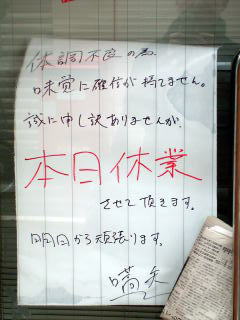 体調不良の為
味覚に確信が持てません。
誠に申し訳ありませんが、
本日休業
させて頂きます。
明日から頑張ります。